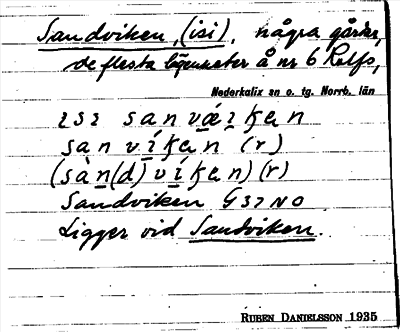 Sandviken, (isi), några gårdar,
de flesta lägenheter å nr 6 Rolfs,
Nederkalix sn o. tg. Norrb. län
san
san víkan (r)
(sàn(d) víkan) (r)
Sandviken G 37 NO
Ligger vid Sandviken.
RUBEN DANIELSSON 1935